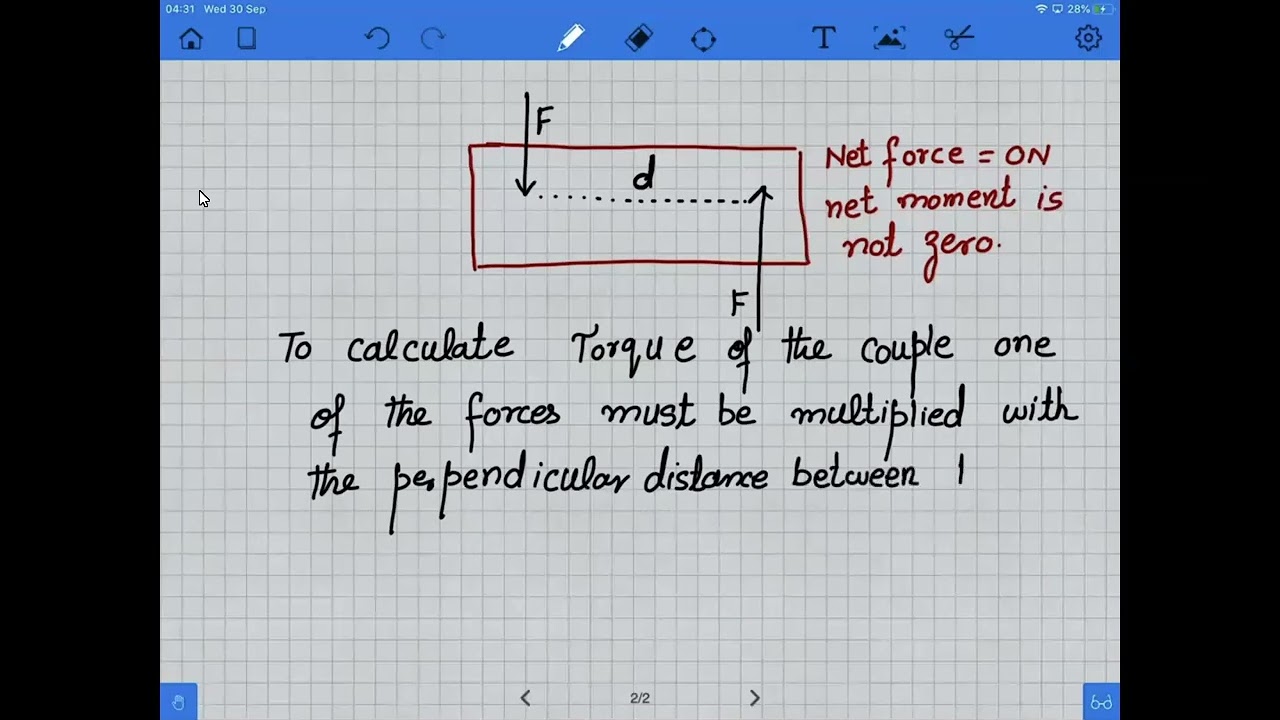 04:31 Wed 30 Sep 28%
T
F
d
Net force = 0N
net moment is
not zero.
F
To calculate Torque of the couple one
of the forces must be multiplied with
the perpendicular distance between
2/2